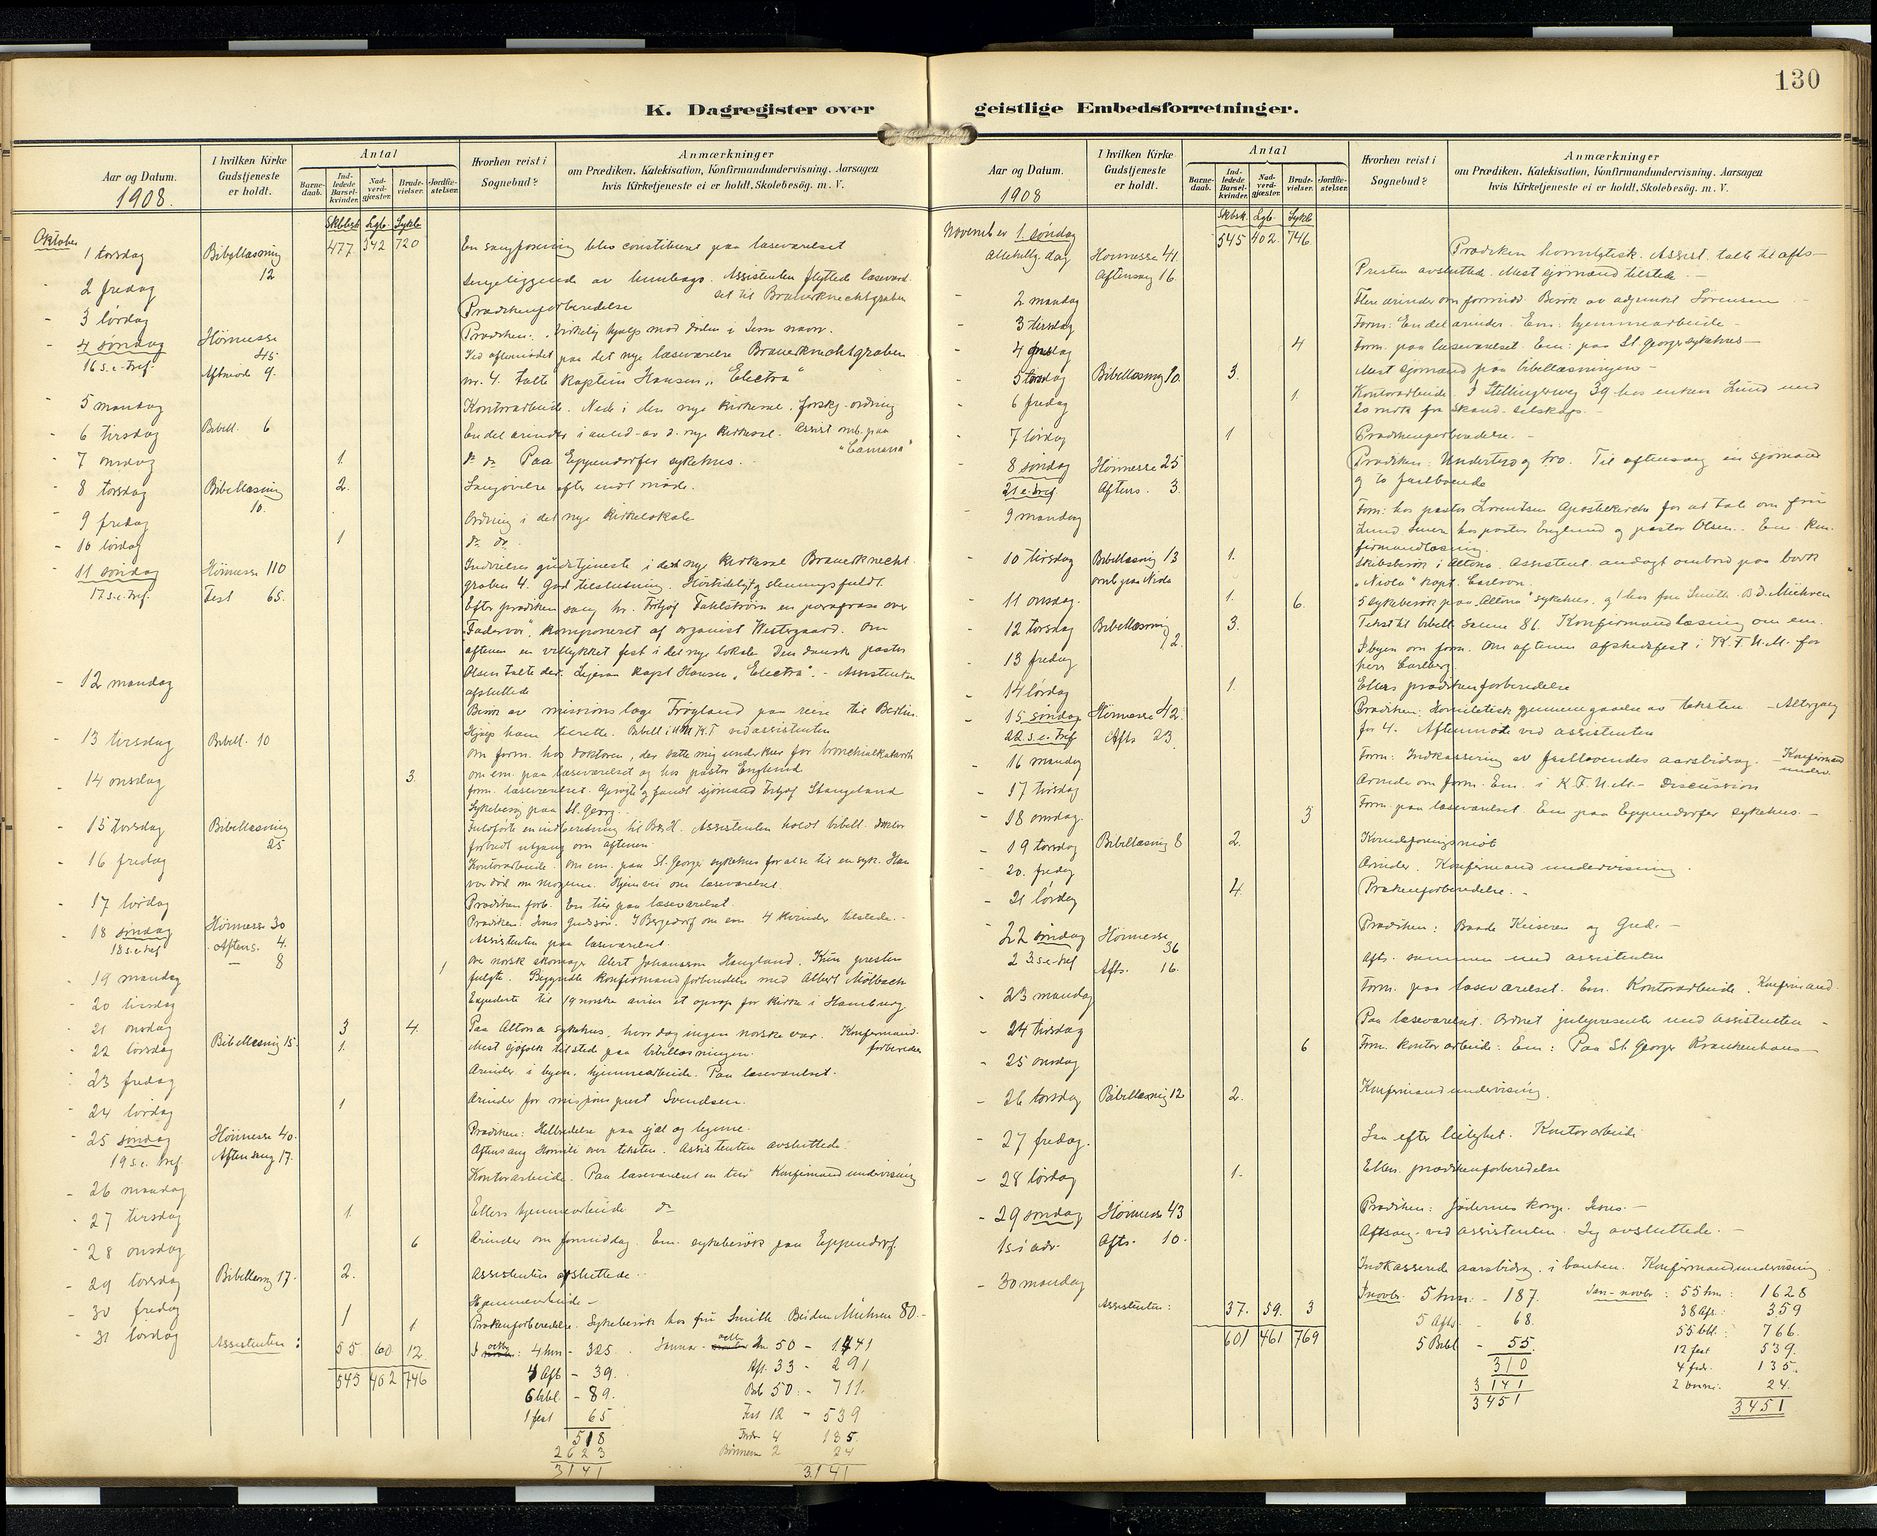 130
K. Dagregister over geistlige Embedsforretninger.
Aar og Datum.
1908.
I hvilken Kirke Gudstjeneste er holdt.
Antal
Barnedaab.
Indledede Barselkvinder.
Nadverdgjæster.
Brudevielser.
Jordfæstelser.
Hvorhen reist i Sognebud?
Anmærkninger
om Prædiken, Katekisation, Konfirmandundervisning. Aarsagen
hvis Kirketjeneste ei er holdt, Skolebesøg. m. V.
Skbbsk Lgb. Sykb
Oktober 477 342 720
1 torsdag Bibellæsning 12 En sangforening blev constitueret paa læseværelset
2 fredag Sengeliggende av lumbago. Assistenten flyttede læseværelset til Brauerknechtgraben
3 lørdag Prædikenforberedelse
4 søndag Høimesse 45 Prædiken: Virkelig hjælp mod døden i Jesu navn.
16 s.e. tref. Aftmøde 9. Ved aftenmødet paa det nye læseværelse Brauerknechtgraben
nr. 4. talte kaptein Hansen, "Electra"
5 mandag Kontorarbeide. Nede i den nye kirkesal. forskj. ordning
6 tirsdag Bibell. 6 En del ærinder i anled. av d. nye kirkesal. Assist. omb. paa
7 onsdag 1. do do Paa Eppendorfer sykehus.
8 torsdag Bibellæsning 10. 2. Sangøvelse efter endt møde.
9 fredag Ordning i det nye kirkelokale
10 lørdag 1 do do
11 søndag Høimesse 110 Indvielses gudstjeneste i det nye kirkesal Brauerknecht-
17 s.e. tref. Fest 65. graben 4. God tilslutning. Høitidelig og stemningsfuldt.
Efter prædiken sang hr. Fritjof Fahlstrøm en parafrase over
"Fadervor", komponeret af organist Westergaard. Om
aftenen en vellykket fest i det nye lokale. Den danske pastor
Olsen talte der. Ligesaa kapt Hansen "Electra". - Assistenten
afsluttede
12 mandag Besøk av missionslæge Frøyland paa reise til Berlin.
13 tirsdag Bibell. 10
Om form. hos doktoren, der satte mig under kur for bronchialkatarrh
om em. paa læseværelset og hos pastor Englund
14 onsdag 3.
15 torsdag Bibellæsning 25
forbødt utgang om aftenen.
16 fredag Kontorarbeide. Om em. paa St. Georger sykehus
var død om morgenen. Hjem vei om læseværelset.
17 lørdag Prædikenforb. En tur paa læseværelset.
18 søndag Høimesse 30 Prædiken: Jesus Gudssøn. I Bergedorf om em. 4 kvinder tilstede.
18 s.e. tref Aftens. 4. Assistenten paa læseværelset.
8
19 mandag 1
fulgte. Begyndte konfirmandforberedelse med Albert Mølbach
20 tirsdag Expederte til 19 norske aviser et oprop for kirke i Hamburg
21 onsdag 3 4. Paa Altona sykehus, hvor dog ingen norske var. Konfirmand-
22 torsdag Bibellæsning 15. 1. Mest sjøfolk tilstede paa bibellæsningen. forberedelse
23 fredag Ærinder i byen. hjemmearbeide. Paa læseværelset.
24 lørdag 1 Ærinder for missionsprest Svendsen.
25 søndag Høimesse 40. Prædiken: Helbredelse paa sjæl og legeme.
19 s.e. tref. Aftensang 17. Aftensang Homili over teksten. Assistenten avsluttede.
26 mandag Kontorarbeide. Paa læseværelset en tur Konfirmandundervisning
27 tirsdag 1 Ellers hjemmearbeide do
28 onsdag 6 Ærinder om formiddag. Em. sykebesøk paa Eppendorf.
29 torsdag Bibellæsng 17. 2. Assistenten afsluttede.
30 fredag 1 Hjemmearbeide -
31 lørdag 1
Assistenten: 55 60 12.
545 402 746
I octbr: 4 hm - 325. Januar-octbr hm 50 - 1441
4 Aft - 39. Aft. 33 - 291
6 bibl - 89. Bib 50 - 711.
1 fest 65 Fest 12 - 539
518 Fødr. 4 135.
2623 Børnem 2 24
3141 3141
Aar og Datum.
1908
I hvilken Kirke Gudstjeneste er holdt.
Antal
Barnedaab.
Indledede Barselkvinder.
Nadverdgjæster.
Brudevielser.
Jordfæstelser.
Hvorhen reist i Sognebud?
Anmærkninger
om Prædiken, Katekisation, Konfirmandundervisning. Aarsagen
hvis Kirketjeneste ei er holdt. Skolebesøg. m. V.
Skbsk. Lgb. Sykb
November 1 søndag 545 402 746
Allehelg. dag Høimesse 41. Prædiken homiletisk. Assist. talte til afts-
Aftensang 16 Presten avsluttede. Mest sjømænd tilstede. -
2 mandag Flere ærinder om formidd. Besøk av adjunkt Sørensen
3 tirsdag Form: En del ærinder. Em: hjemmearbeide -
4 onsdag 4 Form. paa læseværelset. Em: paa St. Georgs sykehus -
5 torsdag Bibellæsning 10. 3. Mest sjømænd paa bibellæsningen -
6 fredag 1. Kontorarbeide. I Stellingerweg 39 hos enken Lund med
20 mark fra skand. selskap. -
7 lørdag 1 Prædikenforberedelse. -
8 søndag Høimesse 25 Prædiken: Undertro og tro. Til aftensang en sjømand
21 e. tref Aftens. 3. og to fastboende
9 mandag Form: hos pastor Lorentsen Apostelkirche for at tale om fru
Lund. Senere hos pastor Englund og pastor Olsen. Em. kon-
firmandlæsning
10 tirsdag Bibellæsning 13 1. Skibsbesøk i Altona. Assistent. andagt ombord paa bark
omb. paa Niola "Niola" kapt. Carlson.
11 onsdag. 1. 6. 5 sykebesøk paa "Altona" sykehus, og 1 hos fru Smith B.d. Mühren
12 torsdag Bibellæsning 12. 3. Tekst til bibell. Salme 86. Konfirmandlæsning om em.
13 fredag I byen om form. Om aftenen afskedsfest i K.F.U.M. for
herr Carlberg.
14 lørdag 1. Ellers prædikenforberedelse
15 søndag Høimesse 42. Prædiken: Homiletisk gjennemgaaelse av teksten. Altergang
22 s.e. tref Afts 23. for 4. Aftenmøde ved assistenten
16 mandag Form: Indkassering af fastboendes aarsbidrag. - Konfirmand
underv.
17 tirsdag Ærinde om form. Em. i K.F.U.M. - Discussion
18 onsdag. 3 Form. paa læseværelset. Em paa Eppendorfer sykehus. -
19 torsdag Bibellæsning 8 2. Kvindeforeningsmøt
20. fredag Ærinder. Konfirmandundervisning.
21 lørdag 4. Prækenforberedelse. -
22 søndag Høimesse 36 Prædiken: Baade Keiseren og Gud. -
23 s.e. tref Afts. 16. Afts. sammen med assistenten
23 mandag Form. paa læseværelset. Em. Kontorarbeide. Konfirmand.
24 tirsdag Paa læseværelset. Ordnet julepresenter med assistenten -
25 onsdag 6 Form. kontorarbeide: Em: Paa St. Georger Krankenhaus -
26 torsdag Bibellæsnig 12 2. Konfirmandundervisnig.
27 fredag. Saa efter leilighet. Kontorarbeide
28 lørdag 1. Ellers prædikenforberedelse
29 søndag Høimesse 43 Prædiken: Jødernes konge. Jesus. -
1 s i adv. Afts. 10. Aftsang. ved assistenten. Jeg avsluttede. -
30 mandag Indkasserede aarsbidrag. i banken. Konfirmandundervisning
Assistenten: 37. 59. 3
601 461 769
I novbr. 5 hm: - 187. Jan-novbr: 55 hm: 1628
5 Afts - 68. 38 Aft: 359
5 Bibl - 55. 55 bbl: 766.
310 12 fest 539.
3141 4 fødr. 135.
3451 24.
3451